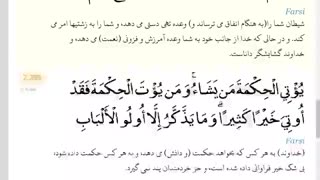 Farsi
شیطان شما را(به هنگام انفاق می ترساند و) وعده تهی دستی می دهد و شما را به زشتیها امر می
کند. و در حالی که خدا از جانب خود به شما وعده آمرزش و فزونی (نعمت) می دهد و
خداوند گشایشگر داناست
2,269
يُؤْتِي الْحِكْمَةَ مَن يَشَاءُ ۚ وَمَن يُؤْتَ الْحِكْمَةَ فَقَدْ
أُوتِيَ خَيْرًا كَثِيرًا ۗ وَمَا يَذَّكَّرُ إِلَّا أُولُو الْأَلْبَابِ
Farsi
(خداوند) به هر کس که بخواهد حکمت (و دانش) می دهد و به هر کس حکمت داده شود؛
بی شک خیر فراوانی داده شده است، و جز خردمندان پند نمی گیرد.